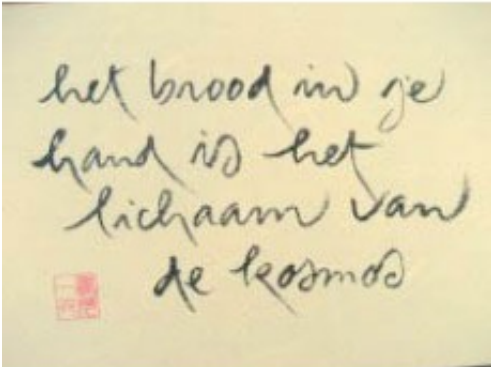 het brood in je
hand is het
lichaam van
de kosmos